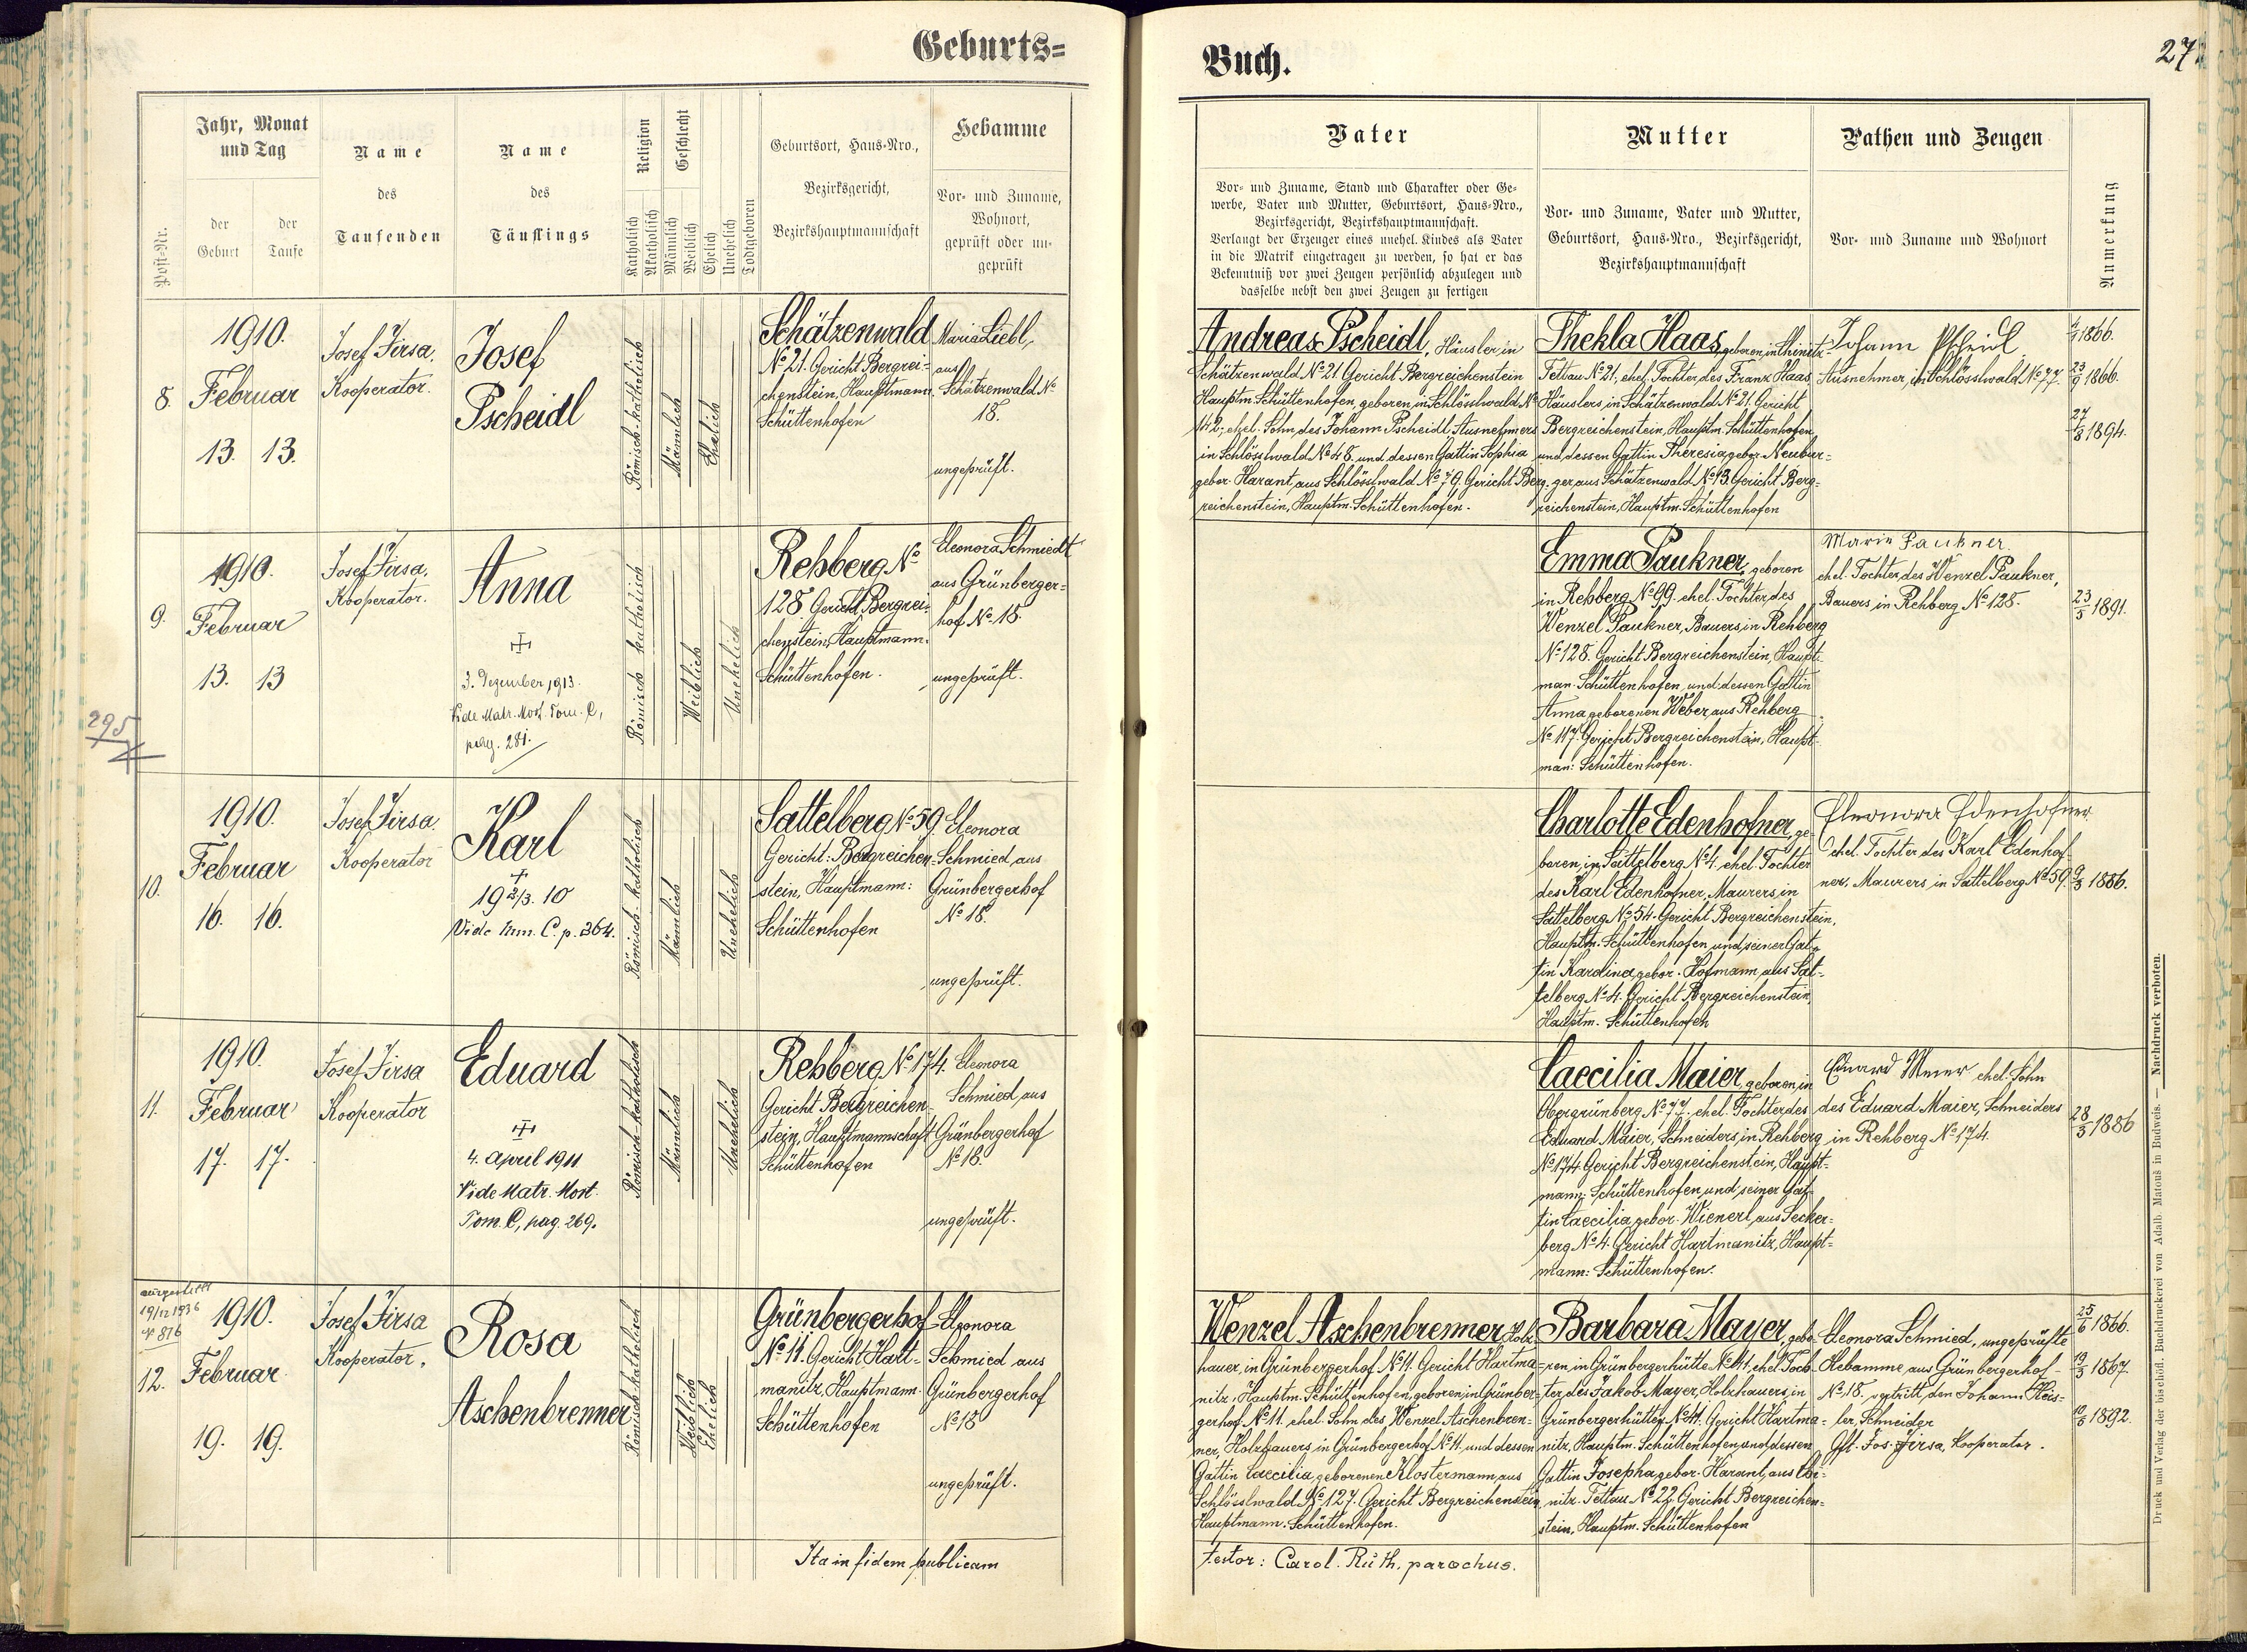 Geburts=
Jahr, Monat
und Tag
der
Geburt
der
Taufe
Post-Nr.
Name
des
Taufenden
Name
des
Täuflings
Religion
Katholisch
Akatholisch
Geschlecht
Männlich
Weiblich
Ehelich
Unehelich
Todtgeboren
Geburtsort, Haus-Nro.,
Bezirksgericht,
Bezirkshauptmannschaft
Hebamme
Vor- und Zuname,
Wohnort,
geprüft oder un-
geprüft
8.
1910.
Februar
13. 13.
Josef Jirsa,
Kooperator.
Josef
Pscheidl
Römisch-katholisch
Männlich
Ehelich
Schätzenwald
No 21. Gericht Bergrei-
chenstein, Hauptmann.
Schüttenhofen
Maria Liebl,
aus
Schätzenwald No
18.
ungeprüft.
9.
1910.
Februar
13. 13
Josef Jirsa,
Kooperator.
Anna
3. Dezember 1913.
Vide Matr. Mort. Tom. C,
pag. 281.
Römisch katholisch
Weiblich
Unehelich
Rehberg No
128 Gericht Bergrei-
chenstein, Hauptmann.
Schüttenhofen.
Eleonora Schmiedt
aus Grünberger-
hof No 18.
ungeprüft.
295
10.
1910.
Februar
16. 16.
Josef Jirsa.
Kooperator
Karl
+
19 2/3. 10
Vide Tom. C. p. 264.
Römisch-katholisch
Männlich
Unehelich
Sattelberg No 59.
Gericht: Bergreichen-
stein, Hauptmann:
Schüttenhofen
Eleonora
Schmied, aus
Grünbergerhof
No 18.
ungeprüft.
11.
1910.
Februar
17. 17.
Josef Jirsa
Kooperator
Eduard
4. April 1911
Vide Matr. Mort.
Tom. C, pag. 269.
Römisch-katholisch
Männlich
Unehelich
Rehberg No 174.
Gericht Bergreichen-
stein, Hauptmannschaft
Schüttenhofen
Eleonora
Schmied, aus
Grünbergerhof
No 18.
ungeprüft.
ausgestellt
19/12 1936
No 816
12.
1910.
Februar
19. 19.
Josef Jirsa
Kooperator.
Rosa
Aschenbrenner
Römisch-katholisch
Weiblich
Ehelich
Grünbergerhof
No 11. Gericht Hart-
manitz, Hauptmann.
Schüttenhofen
Eleonora
Schmied aus
Grünbergerhof
No 18
ungeprüft.
Ita in fidem publicam
Buch.
27
Vater
Vor- und Zuname, Stand und Charakter oder Ge-
werbe, Vater und Mutter, Geburtsort, Haus-Nro.,
Bezirksgericht, Bezirkshauptmannschaft.
Verlangt der Erzeuger eines unehel. Kindes als Vater
in die Matrik eingetragen zu werden, so hat er das
Bekenntniß vor zwei Zeugen persönlich abzulegen und
dasselbe nebst den zwei Zeugen zu fertigen
Mutter
Vor- und Zuname, Vater und Mutter,
Geburtsort, Haus-Nro., Bezirksgericht,
Bezirkshauptmannschaft
Pathen und Zeugen
Vor- und Zuname und Wohnort
Anmerkung
Andreas Pscheidl, Häusler in
Schätzenwald No 21. Gericht Bergreichenstein
Hauptm. Schüttenhofen, geboren in Schlösslwald No
142, ehel. Sohn des Johann Pscheidl Ausnehmers
in Schlösslwald No 48. und dessen Gattin Sophia
gebor. Harant, aus Schlösslwald No 79. Gericht Berg-
reichenstein, Hauptm. Schüttenhofen.
Thekla Haas, geboren in Chinitz-
Tettau No 21, ehel. Tochter des Franz Haas,
Häuslers, in Schätzenwald No 21. Gericht
Bergreichenstein, Hauptm. Schüttenhofen
und dessen Gattin Theresia, gebor. Neubur-
ger, aus Schätzenwald No 13. Gericht Berg-
reichenstein, Hauptm. Schüttenhofen
Johann Pscheidl
Ausnehmer, in Schlösslwald No 77.
1866.
23/9 1866.
27/8 1894.
Emma Paukner, geboren
in Rehberg No 99. ehel. Tochter des
Wenzel Paukner, Bauers, in Rehberg
No 128. Gericht Bergreichenstein, Haupt-
man. Schüttenhofen, und dessen Gattin
Anna geborenen Weber, aus Rehberg
No 117. Gericht Bergreichenstein, Haupt-
man: Schüttenhofen.
Marie Paukner.
ehel. Tochter des Wenzel Paukner,
Bauers, in Rehberg No 128.
23/5 1891.
Charlotte Edenhofner, ge-
boren, in Sattelberg No 4. ehel. Tochter
des Karl Edenhofner, Maurers, in
Sattelberg No 54. Gericht Bergreichenstein,
Hauptm. Schüttenhofen, und seiner Gat-
tin Karolina, gebor. Hofmann, aus Sat-
telberg No 4. Gericht Bergreichenstein,
Hauptm. Schüttenhofen
Eleonora Edenhofner
ehel. Tochter des Karl Edenhof-
ner, Maurers, in Sattelberg No 59.
9/3 1886.
Caecilia Maier, geboren, in
Obergrünberg No 77. ehel. Tochter des
Eduard Maier, Schneiders, in Rehberg
No 174. Gericht Bergreichenstein, Haupt-
mann: Schüttenhofen, und seiner Gat-
tin Caecilia, gebor. Wienerl, aus Secker-
berg No 4. Gericht Hartmanitz, Haupt-
mann: Schüttenhofen.
Eduard Meier ehel. Sohn
des Eduard Maier, Schneiders
in Rehberg No 174.
28/5 1886
Wenzel Aschenbrenner, Holz-
hauer, in Grünbergerhof No 11. Gericht Hartma-
nitz, Hauptm. Schüttenhofen, geboren, in Grünber-
gerhof No 11. ehel. Sohn des Wenzel Aschenbren-
ner, Holzhauers, in Grünbergerhof No 11. und dessen
Gattin Caecilia, geborenen Klostermann, aus
Schlösslwald No 127. Gericht Bergreichenstein,
Hauptmann. Schüttenhofen.
Barbara Mayer, gebo-
ren, in Grünbergerhütte No 41, ehel. Toch-
ter, des Jakob Mayer, Holzhauers, in
Grünbergerhütte No 41. Gericht Hartma-
nitz, Hauptm. Schüttenhofen, und dessen
Gattin Josepha, gebor. Harant, aus Chi-
nitz-Tettau No 22, Gericht Bergreichen-
stein, Hauptm. Schüttenhofen
Eleonora Schmied, ungeprüfte
Hebamme aus Grünbergerhof
No 18. vertritt, den Johann Heis-
ler, Schneider
Gft. Jos. Jirsa, Kooperator.
25/6 1866.
19/3 1867.
1892.
testor: Carol. Rúth, parochus.
Druck und Verlag der bischöfl. Buchdruckerei von Adalb. Matouš in Budweis. — Nachdruck verboten.